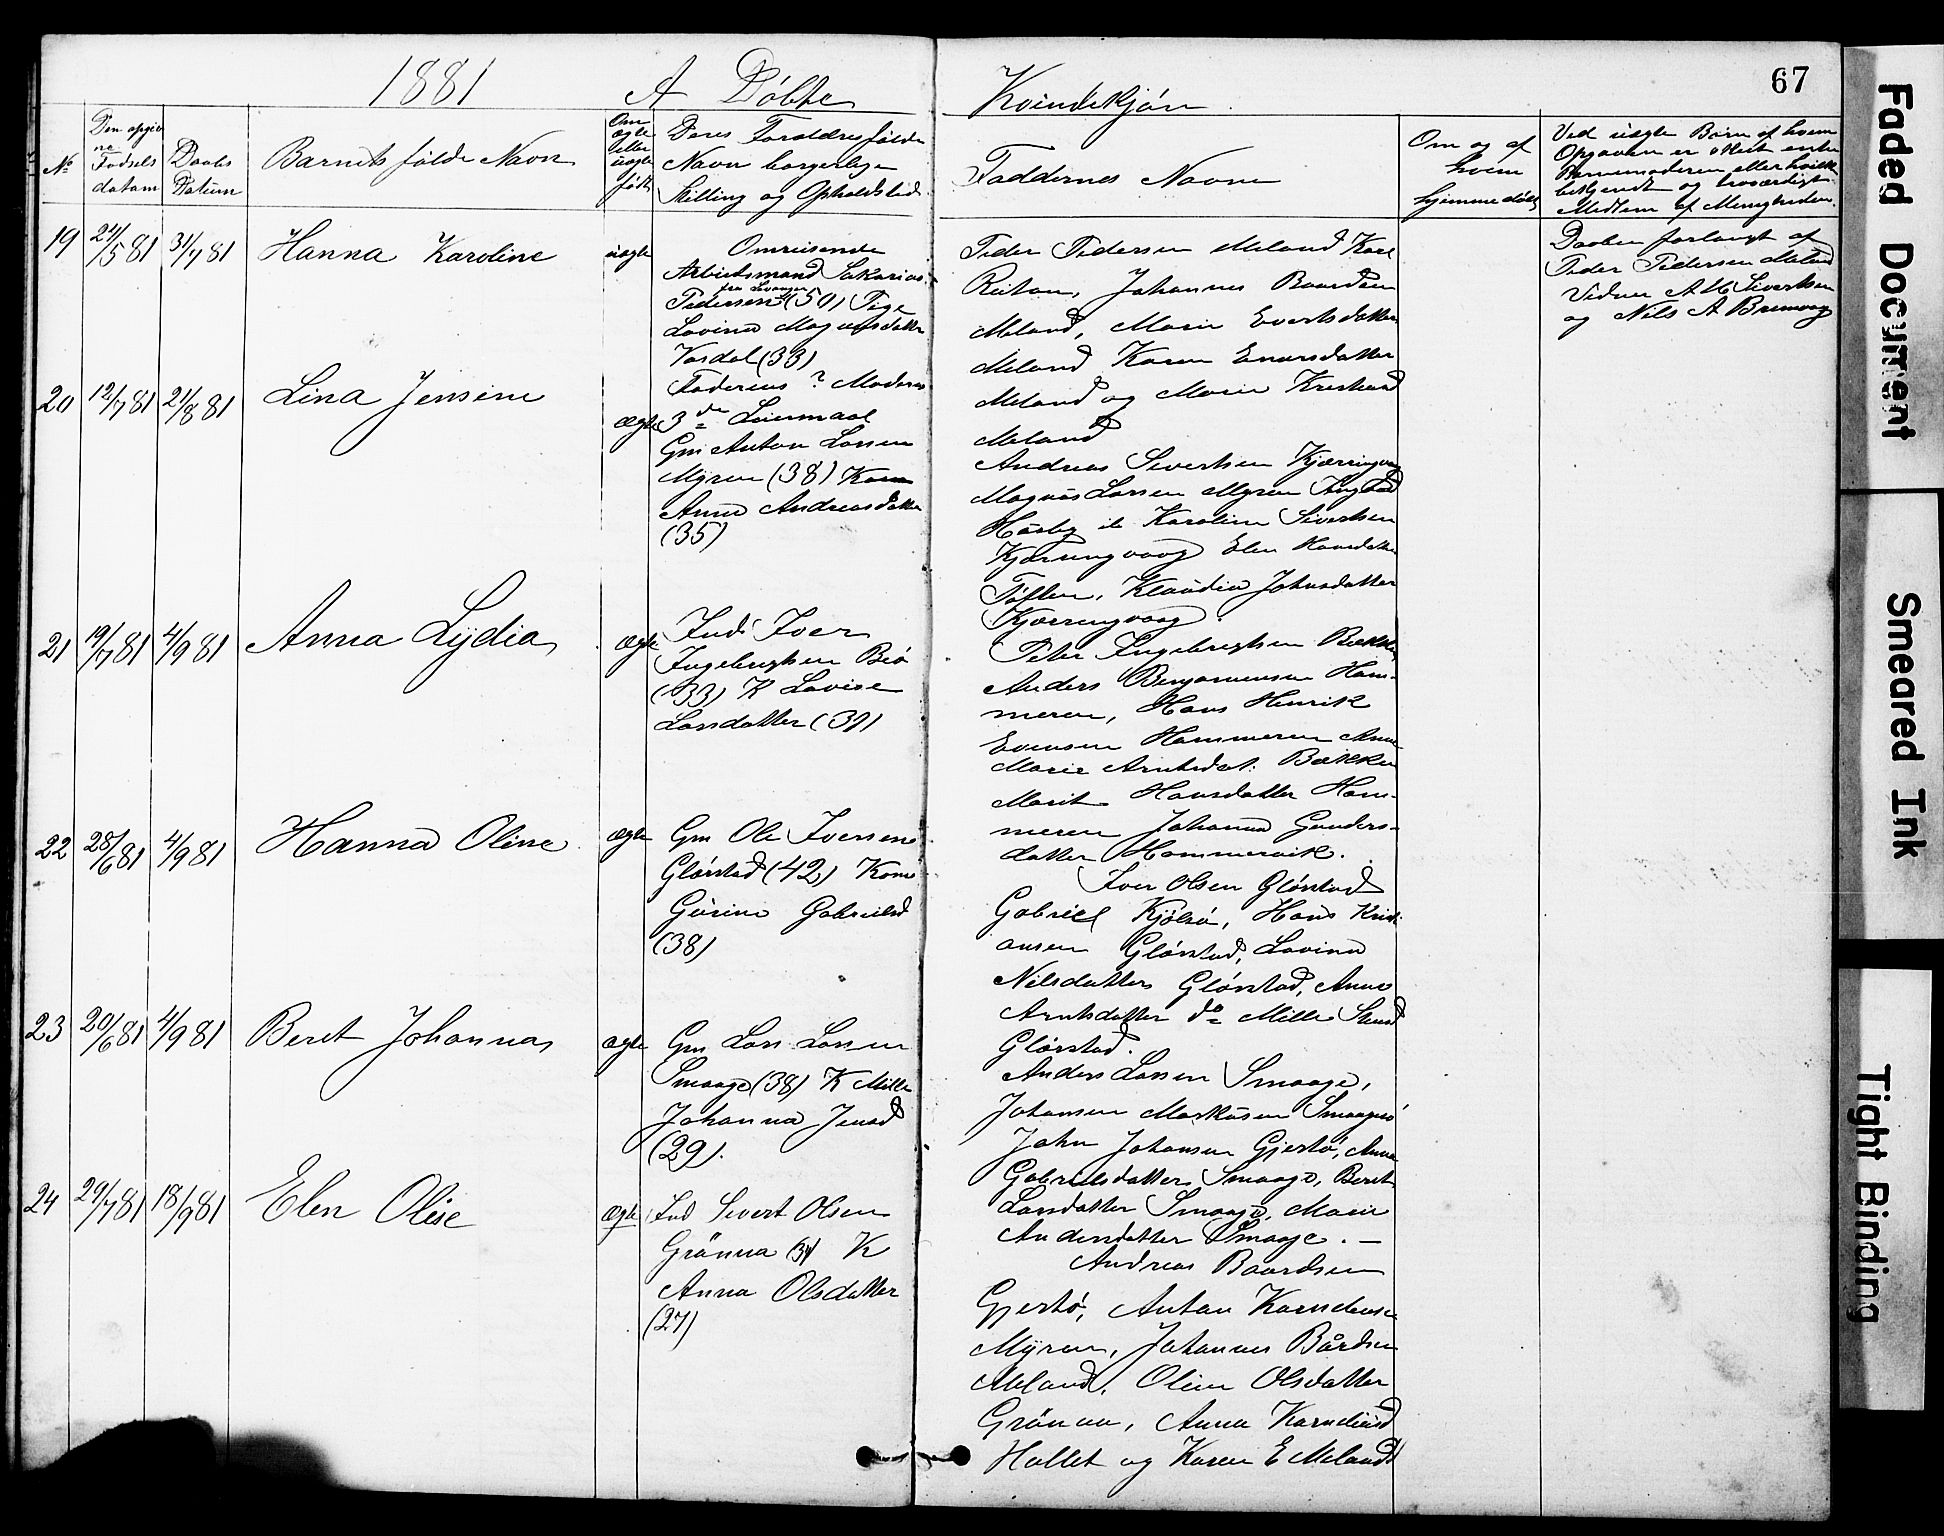 1881 A Døbte Kvindekjøn
67
No
Den opgiv
ne
Fødsels
datum
Daabs
Datum
Barnets fulde Navn
Om
ægte
eller
uægte
født
Deres Forældres fulde
Navn borgerlige
Stilling og Opholdsted
Faddernes Navne
Om og af
hvem
hjemmedøbt
Ved uægte Børn af hvem
Opgaven er skeet enten
Barnemoderen eller hvilket
bekjendt og troværdigt
Medlem af Menigheden
19 24/5 81 31/7 81 Hanna Karoline uægte
Omreisende
Arbeidsmand Sakarias
fra Levanger
Pedersen (50) Pige
Lovina Magnusdatter
Vardal (33)
Faderens ? Moderens
3die Leiermaal
Peder Pedersen Meland Karl
Reitan, Johannes Baardsen
Meland, Marie Evertsdatter
Meland Karen Enersdatter
Meland og Marie
Meland
Daaben forlangt af
Peder Pedersen Meland
Vidner A M Sivertsen
og Nils A Bremvaag
20 12/7 81 21/8 81 Lina Jensine ægte
Gm Anton Larsen
Myren (38) Kone
Anna Andreasdatter
(35)
Andreas Sivertsen Kjærringvaag
Magnus Larsen Myren
Karoline Sivertsen
Kjærringvaag Elen Hansdatter
Tøften, Klaudia Johnsdatter
Kjærringvaag.
21 19/7 81 4/9 81 Anna Lydia ægte
Ind: Iver
Ingebrigtsen Beø
(33) K Lovise
Larsdatter (39)
Peter Ingebrigtsen Bækken,
Anders Benjaminsen Ham-
meren, Hans Henrik
Evensen Hammeren Anne
Marie Arntsdat: Bækken
Marit Hansdatter Ham-
meren Johanna Gunders-
datter Hammervik.
22 28/6 81 4/9 81 Hanna Oline ægte
Gm Ole Iversen
Glørstad (42) Kone
Gurine Gabrielsd
(38)
Iver Olsen Glørstad
Gabriel Kjølsø, Hans Kristi
ansen Glørstad, Lovina
Nilsdatter Glørstad, Anne
Arntsdatter do Mille
Glørstad.
23 20/6 81 4/9 81 Beret Johanna ægte
Gm Lars Larsen
Smaage (38) K Mille
Johanna Jensd
(29).
Anders Larsen Smaage,
Johansen Markusen Smaagesø
John Johansen Gjertø, Anna
Gabrielsdatter Smaage, Beret
Larsdatter Smaage, Marie
Andersdatter Smaage. —
24 29/7 81 18/9 81 Elen Olise ægte
Ind Sivert Olsen
Grönna (34) K
Anna Olsdatter
(27)
Andreas Baardsen
Gjertø, Anton Karneliusen
Myren, Johannes Bårdsen
Meland, Oline Olsdatter
Grönna, Anna Karneliusd
Hallet og Karen E Melandt
Faded Document
Smeared Ink
Tight Binding